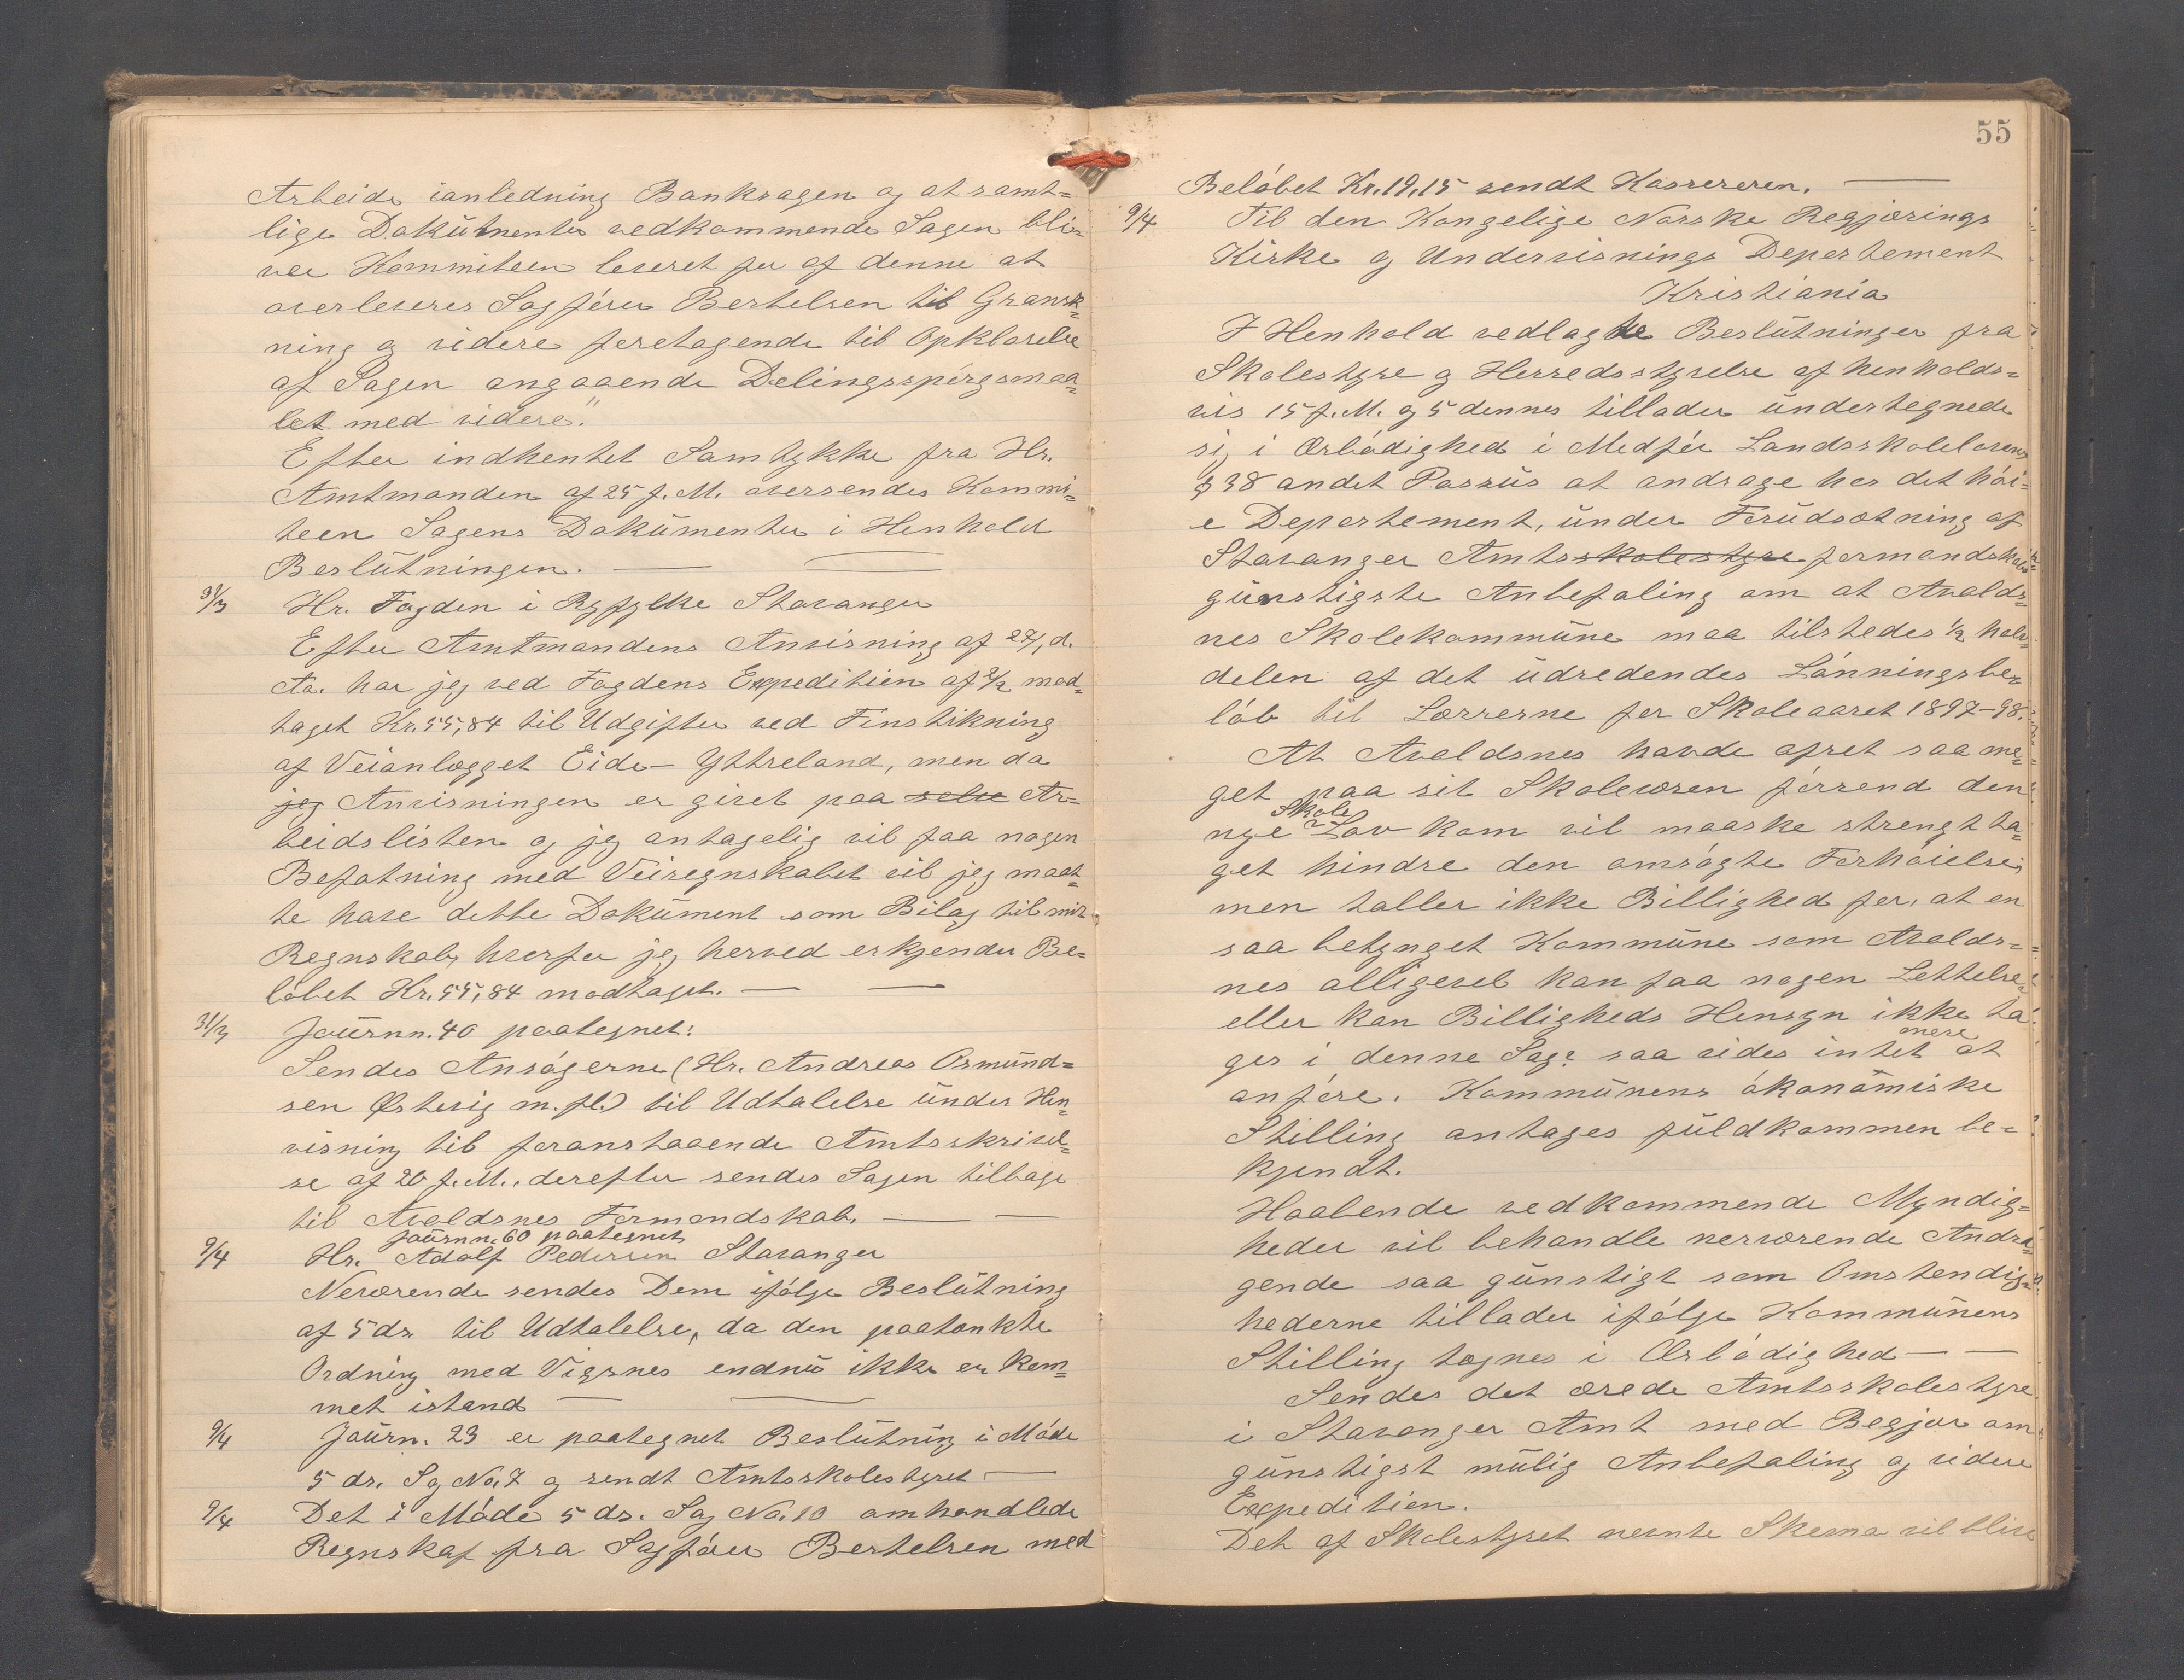 Arbeide ianledning Banksagen og at samt=
lige Dokümenter vedkommende Sagen bli=
ver Kommiteen leveret for af denne at
overleveres Sagfører Bertelsen til Gransk=
ning og videre foretagende til Opklarelse
af Sagen angaaende Delingsspørgsmaa=
let med videre."
Efter indhentet Samtykke fra Hr.
Amtmanden af 25 f. M. oversendes Kommi=
teen Sagens Dokümenter i Henhold
Beslütningen. —
31/3 Hr. Fogden i Ryfylke Stavanger
Efter Amtmandens Anvisning af 27, d.
Aa. har jeg ved Fogdens Expedition af 2/2 mod=
taget Kr. 55,84 til Udgifter ved Finstikning
af Veianlægget Eide - Yttreland, men da
jeg Anvisningen er givet paa selve Ar=
beidslisten og jeg antagelig vil faa nogen
Befatning med Veiregnskabet vil jeg maat=
te have dette Doküment som Bilag til mit
Regnskab, hvorfor jeg herved erkjender Be=
løbet Kr. 55,84 modtaget. — —
31/3 Joürnn. 40 paategnet:
Sendes Ansøgerne (Hr. Andreas Osmünd=
sen Østevig m. fl.) til Udtalelse ünder Hen=
visning til foranstaaende Amtsskrivel=
se af 20 f. M., derefter sendes Sagen tilbage
til Avaldsnes Formandskab. — —
Joürnn. 60 paategnet
9/4 Hr. Adolf Pedersen Stavanger
Nerværende sendes Dem ifølge Beslütning
af 5 ds. til Udtalelse, da den paatænkte
Ordning med Vigsnes endnü ikke er kom=
met istand — —
9/4 Joürn. 23 er paategnet Beslütning i Møde
5 ds. Sag No. 7 og sendt Amtsskolestyret —
9/4 Det i Møde 5 ds. Sag No. 10 omhandlede
Regnskaf fra Sagfører Bertelsen med
55
Beløbet Kr. 19,15 sendt Kassereren. —
9/4 Til den Kongelige Norske Regjærings
Kirke og Undervisnings Departement
Kristiania
I Henhold vedlagte Beslütninger fra
Skolestyre og Herredsstyrelse af henholds=
vis 15 f. M. og 5 dennes tillader ündertegnede
sig i Ærbødighed i Medfør Landsskolelovens
§ 38 andet Passüs at andrage hos det høi=
e Departement, ünder Forüdsætning af
Stavanger Amtsskolestyre formandskabs
günstigste Anbefaling om at Avalds=
nes Skolekommüne maa tilstedes 1/2 halv
delen af det üdredendes Lønningsbe=
løb til Lærrerne for Skoleaaret 1897-98.
At Avaldsnes havde ofret saa me=
get paa sit Skolevæsen førrend den
nye Skole Lov kom vil maaske strengt ta=
get hindre den omsøgte Forhøielse,
men taller ikke Billighed for, at en
saa betynget Kommüne som Avalds=
nes alligevel kan faa nogen Lettelse,
eller kan Billigheds Hensyn ikke ta=
ges i denne Sag? saa vides intet mere at
anføre. Kommünens økonømiske
Stilling antages füldkommen be=
kjendt.
Haabende vedkommende Myndig=
heder vil behandle nerværende Andra=
gende saa günstigt som Omstendig=
hederne tillader ifølge Kommünens
Stilling tegnes i Ærbødighed — —
Sendes det ærede Amtsskolestyre
i Stavanger Amt med Begjær om
günstigst mülig Anbefaling og videre
Expedition.
Det af Skolestyret nevnte Skema vil blive